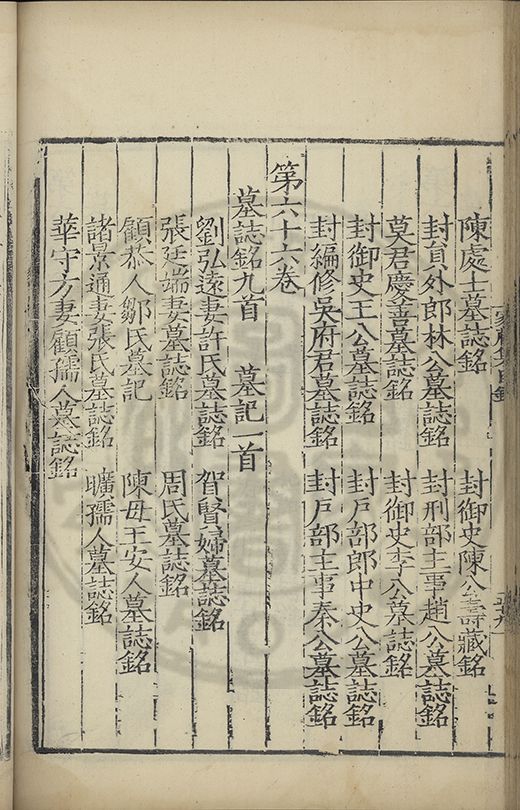 陳處士墓誌銘　封御史陳公壽藏銘
封員外郎林公墓誌銘　封刑部主事趙公墓誌銘
莫君慶善墓誌銘　封御史李公墓誌銘
封御史王公墓誌銘　封戶部郎中史公墓誌銘
封編修吳府君墓誌銘　封戶部主事秦公墓誌銘
第六十六卷
墓誌銘九首　墓記一首
劉弘遠妻許氏墓誌銘　賀賢婦墓誌銘
張廷端妻墓誌銘　周氏墓誌銘
顧恭人鄒氏墓記　陳母王安人墓誌銘
諸景通妻張氏墓誌銘　曠孺人墓誌銘
華守方妻顧孺人墓誌銘